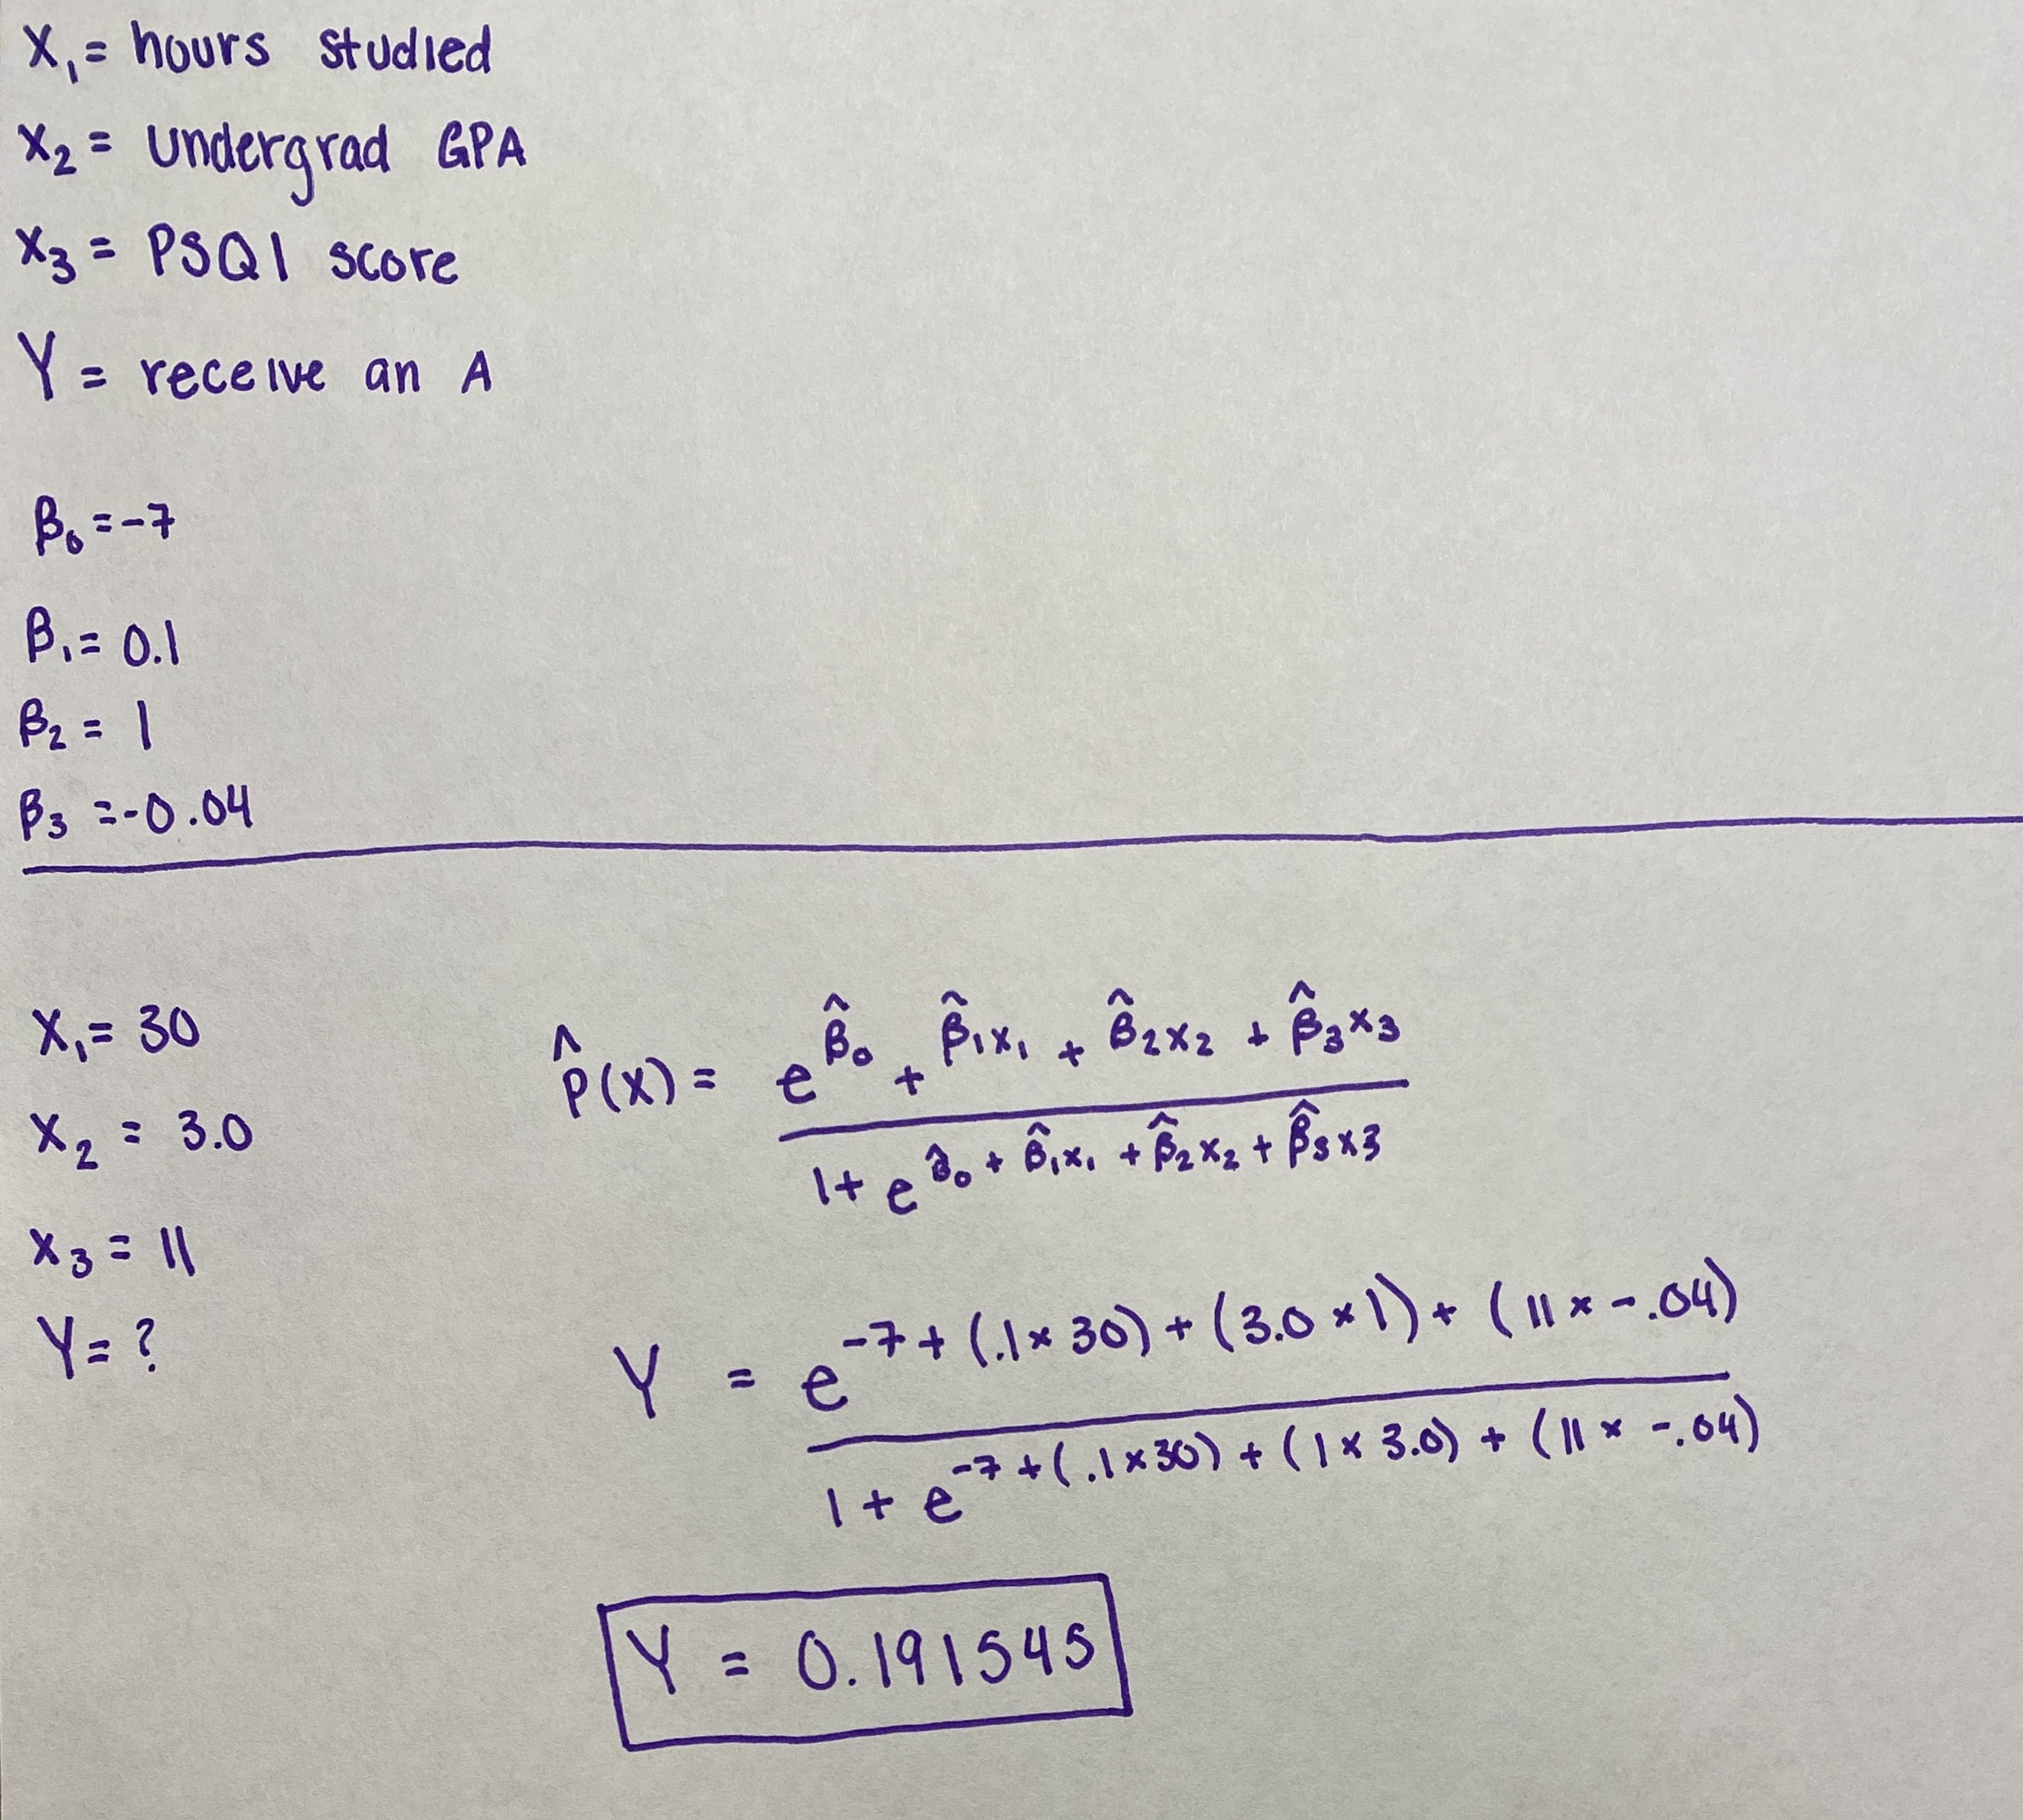 X₁ = hours studied
X₂ = Undergrad GPA
X₃ = PSQI score
Y = receive an A
β₀ = -7
β₁ = 0.1
β₂ = 1
β₃ = -0.04
X₁ = 30
X₂ = 3.0
X₃ = 11
Y = ?
P̂(X) = e^β̂₀ + β̂₁x₁ + β̂₂x₂ + β̂₃x₃
1 + e^β̂₀ + β̂₁x₁ + β̂₂x₂ + β̂₃x3
Y = e^-7 + (.1 × 30) + (3.0 × 1) + (11 × -.04)
1 + e^-7 + (.1 × 30) + (1 × 3.0) + (11 × -.04)
Y = 0.191545